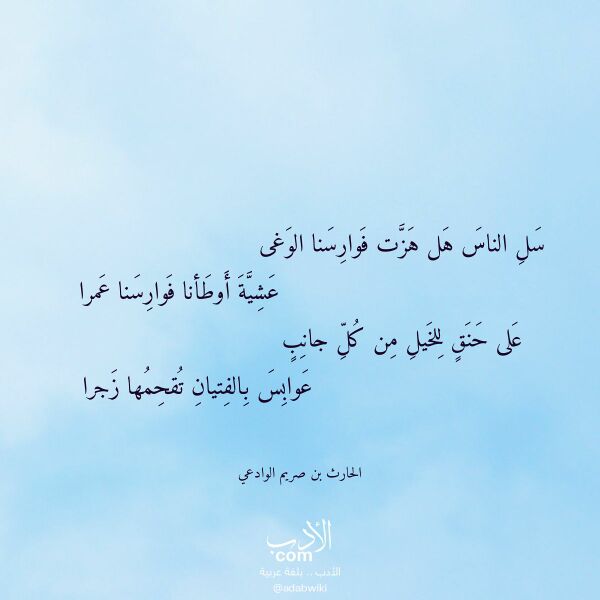 سَلِ الناسَ هَل هَزَّت فَوارِسَنا الوَغى
عَشِيَّةَ أَوطَأنا فَوارِسَنا عَمرا
عَلى حَنَقٍ لِلخَيلِ مِن كُلِّ جانِبٍ
عَوابِسَ بِالفِتيانِ تُقحِمُها زَجرا
الحارث بن صريم الوادعي
الأدب
.com
الأدب .. بلغة عربية
@adabwiki